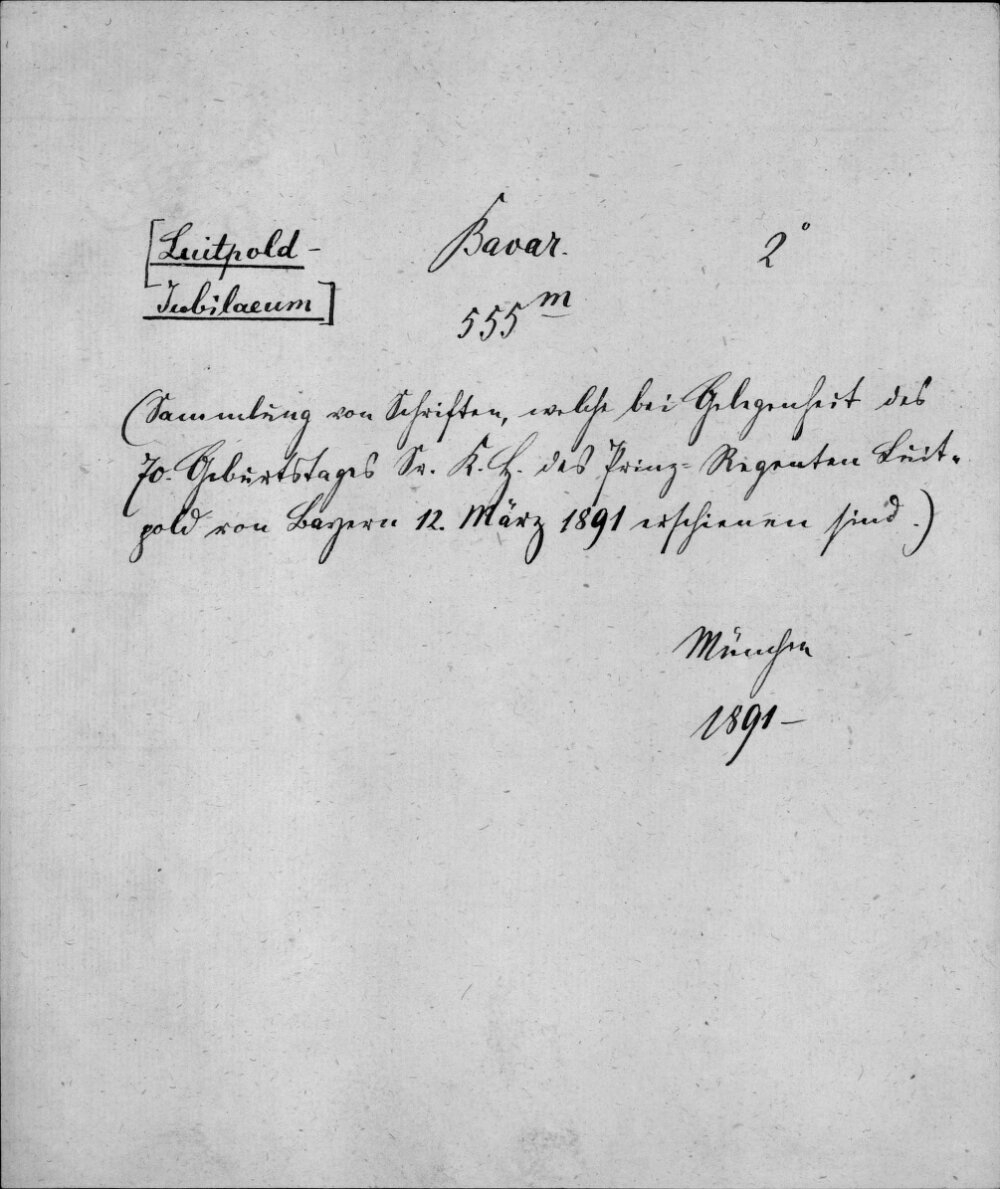 [Luitpold- Bavar. 2°
Jubilaeum] 555 m
(Sammlung von Schriften, welche bei Gelegenheit des
70. Geburtstages Sr. K. H. des Prinz-Regenten Luit-
pold von Bayern 12. März 1891 erschienen sind.)
München
1891–